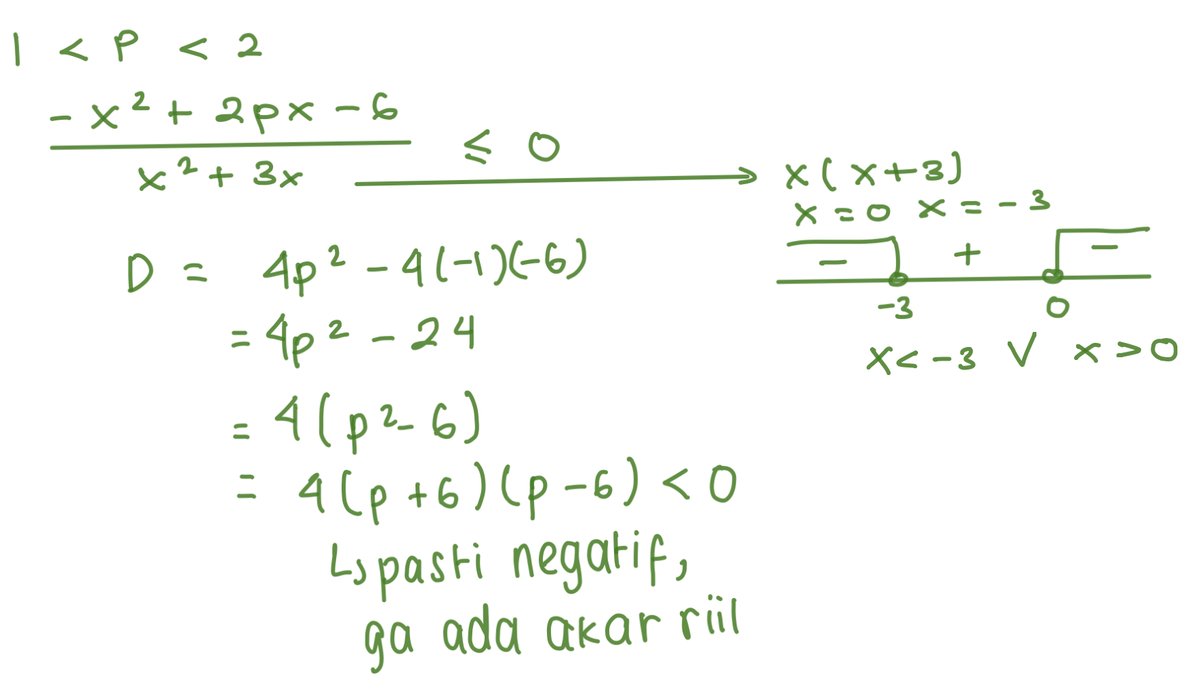 1 < p < 2
- x² + 2px - 6
x² + 3x
≤ 0
x(x+3)
x = 0 x = -3
- + -
-3 0
x < -3 ∨ x > 0
D = 4p² - 4(-1)(-6)
= 4p² - 24
= 4(p² - 6)
= 4(p+6)(p-6) < 0
↳ pasti negatif,
ga ada akar riil